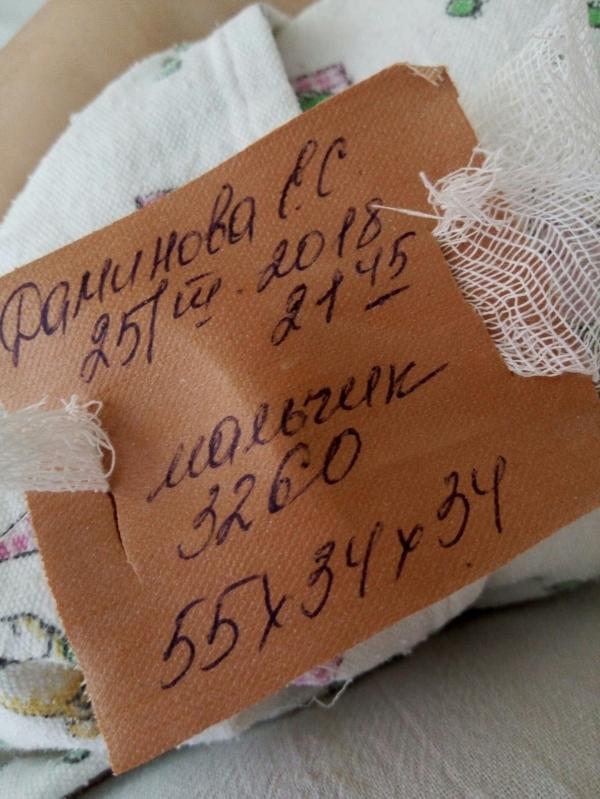 Даминова Е.С
25/III. 2018
21 45
мальчик
3260
55х34х34